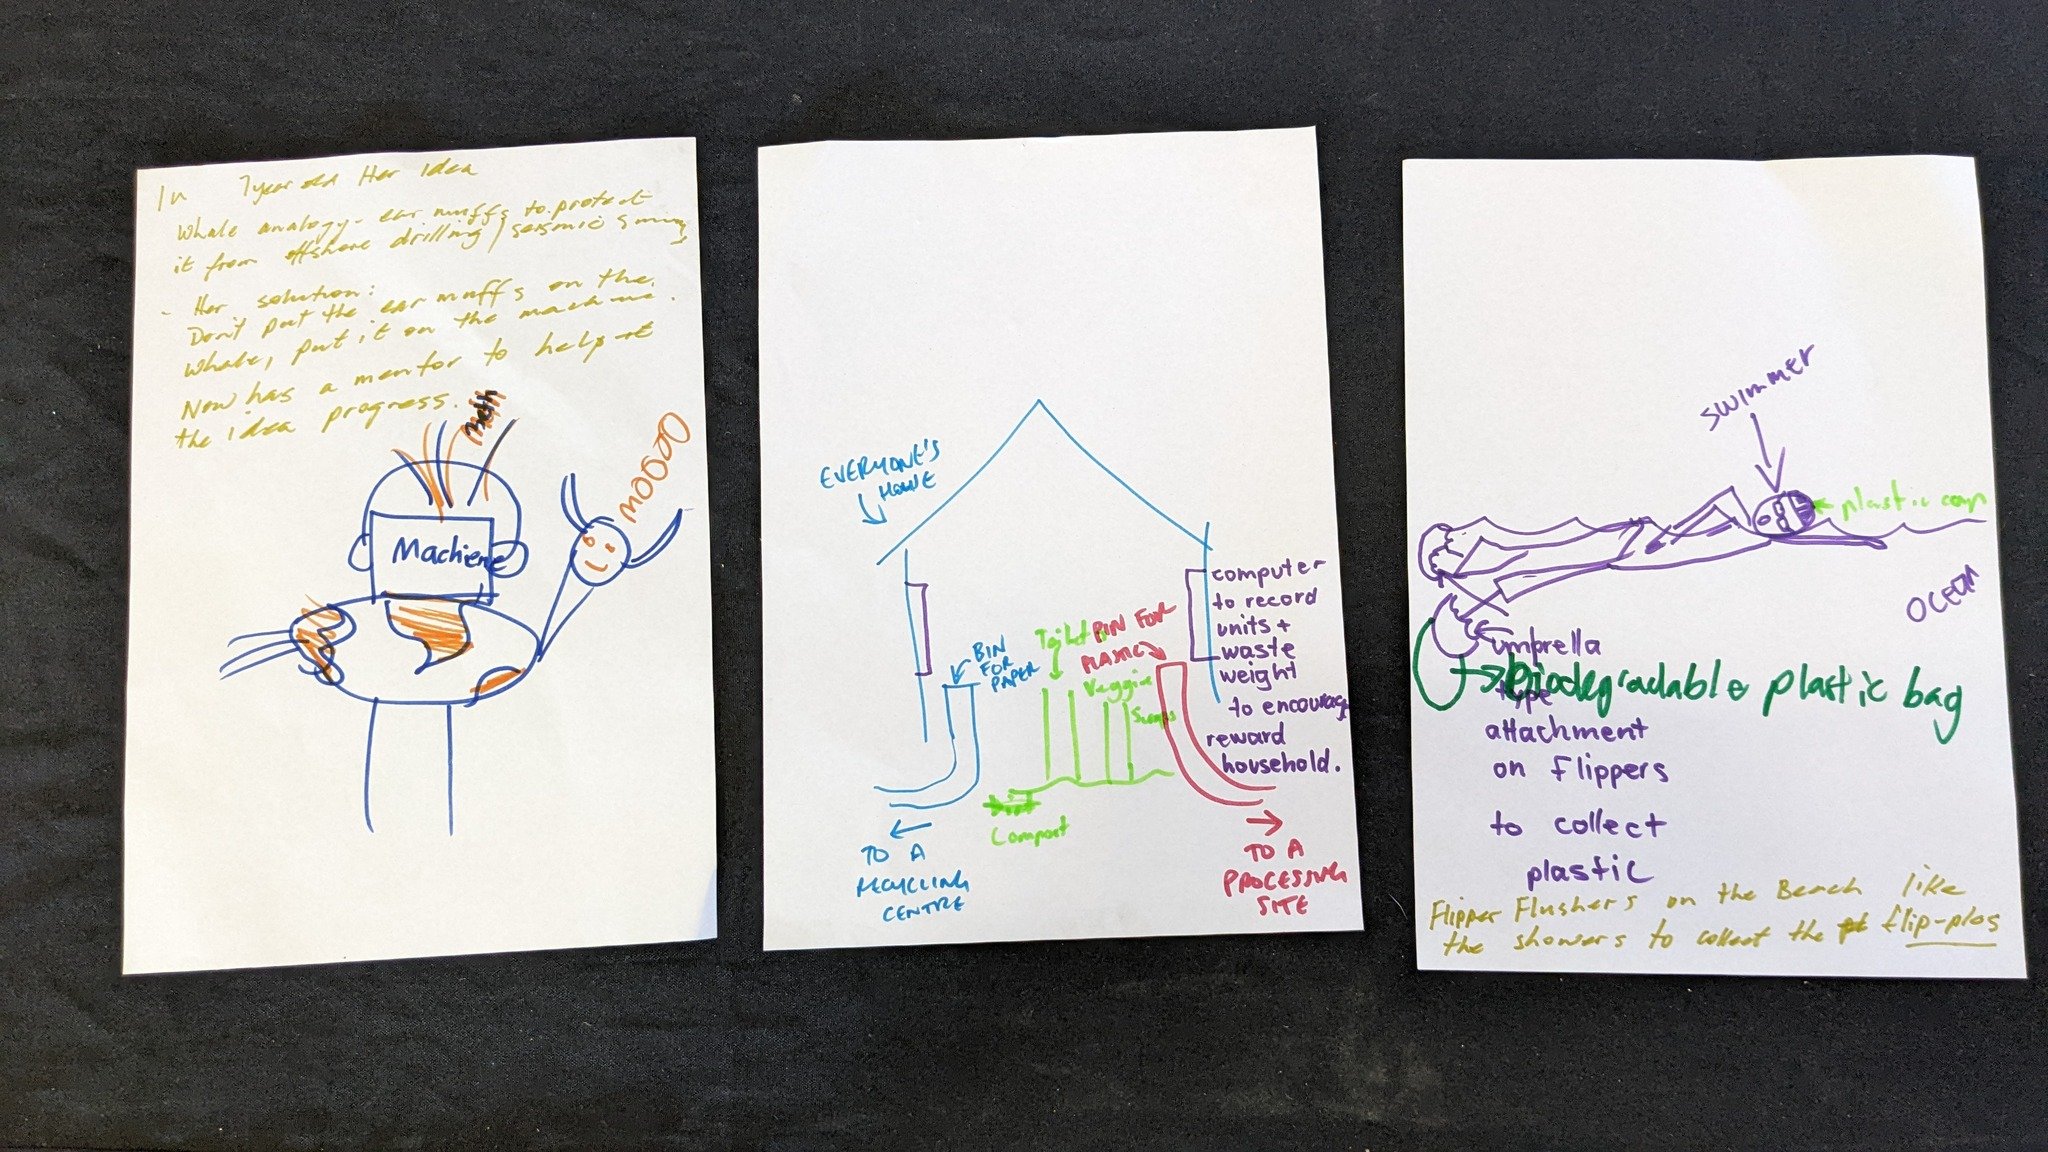 In 7 year old Her Idea
Whale analogy - ear muffs to protect
it from offshore drilling / seismic
- Her solution:
Don't put the ear muffs on the
whale, put it on the machine.
Now has a mentor to help
the idea progress.
MOOOO
Machiene
EVERYONE'S
HOME
BIN
FOR
PAPER
Toilet
BIN FOR
PLASTIC
Veggie
Scraps
computer
to record
units +
waste
weight
to encourage
reward
household.
Compost
TO A
RECYCLING
CENTRE
TO A
PROCESSING
SITE
SWIMMER
plastic cap
OCEAN
umbrella
type
attachment
on flippers
to collect
plastic
Biodegradable plastic bag
Flipper Flushers on the Beach like
the showers to collect the flip-plos